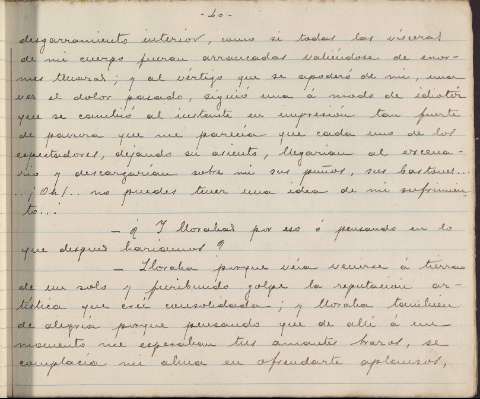 - 60 -
desgarramiento interior, como si todas las vísceras
de mi cuerpo fueran arrancadas valiéndose de enor-
mes tenazas; y al vértigo que se apoderó de mi, una
vez el dolor pasado, siguió una á modo de idiotéz
que se cambió al instante en impresión tan fuerte
de pavura que me parecia que cada uno de los
espectadores, dejando su asiento, llegarian al escena-
rio y descargarian sobre mi sus puños, sus bastones...
...¡Oh!... no puedes tener una idea de mi sufrimien-
to...!
— ¿Y llorabas por eso ó pensando en lo
que despues hariamos?
— Lloraba porque veia venirse á tierra
de un solo y furibundo golpe la reputación ar-
tística que creí consolidada; y lloraba tambien
de alegria porque pensando que de alli á un
momento me esperaban tus amantes brazos, se
complacia mi alma en ofrendarte aplausos,